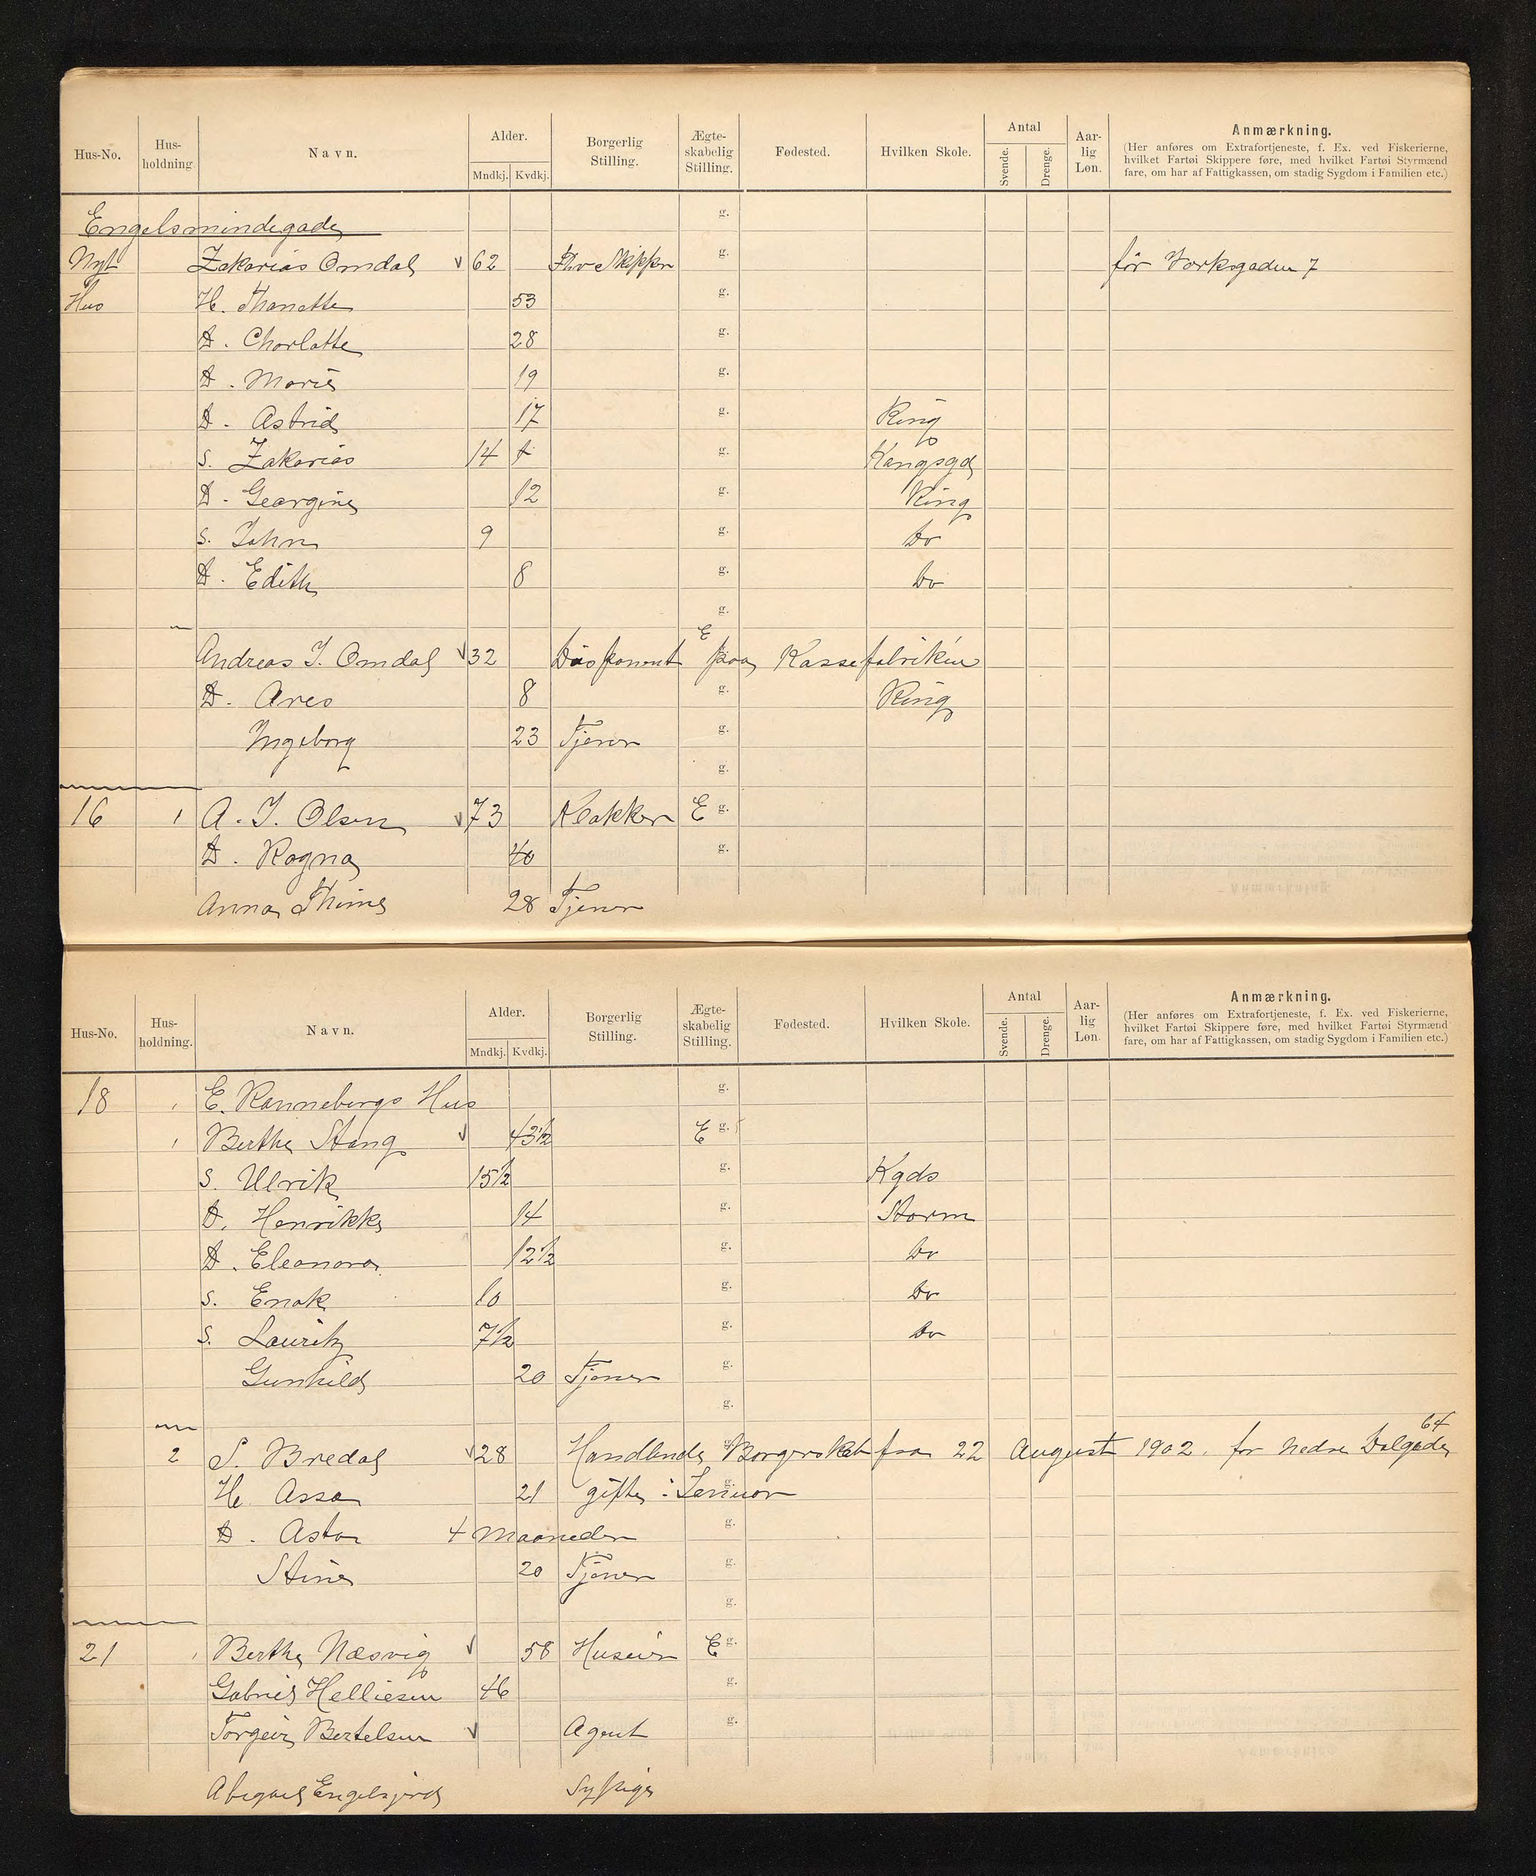 Hus-No. Hus-holdning. Navn. Alder. Mndkj. Kvdkj. Borgerlig Stilling. Ægte-skabelig Stilling. Fødested. Hvilken Skole. Antal Svende. Drenge. Aar-lig Løn. Anmærkning.
(Her anføres om Extrafortjeneste, f. Ex. ved Fiskerierne, hvilket Fartøi Skippere føre, med hvilket Fartøi Styrmænd fare, om har af Fattigkassen, om stadig Sygdom i Familien etc.)
Engelsmindegade g.
Nyt Zakarias Omdal √ 62 Fhv Skipper g. før Værksgaden 7
Hus H. Thonette 53 g.
D. Charlotte 28 g.
D. Marie 19 g.
D. Astrid 17 g. Ring
S. Zakarias 14 g. Kongsgd
D. Georgine 12 g. Ring
S. John 9 g. Do
D. Edith 8 g. Do
g.
Andreas J. Omdal √ 32 Disponent E paa Kassefabriken
D. Ares 8 g. Ring
Ingeborg 23 Tjener g.
g.
16 1 A. J. Olsen √ 73 Klokker E g.
D. Ragna 40 g.
Anna Thime 28 Tjener
Hus-No. Hus-holdning. Navn. Alder. Mndkj. Kvdkj. Borgerlig Stilling. Ægte-skabelig Stilling. Fødested. Hvilken Skole. Antal Svende. Drenge. Aar-lig Løn. Anmærkning.
(Her anføres om Extrafortjeneste, f. Ex. ved Fiskerierne, hvilket Fartøi Skippere føre, med hvilket Fartøi Styrmænd fare, om har af Fattigkassen, om stadig Sygdom i Familien etc.)
18 E. Rannebergs Hus g.
1 Berthe Stang √ 43½ E g.
S. Ulrik 15½ g. Kgds
D. Henrikke 14 g. Storm
D. Eleonora 12½ g. Do
S. Enok 10 g. Do
S. Lauritz 7½ g. Do
Gunhild 20 Tjener g.
g.
2 S. Bredal √ 28 Handlende Borgerskab fra 22 August 1902. før Nedre Dalgade 64
H. Assa 21 gifte i Januar g.
D. Asta 4 Maaneder g.
Stine 20 Tjener g.
g.
21 1 Berthe Næsvig √ 58 Huseier E g.
Gabriel Helliesen 46 g.
Torgeir Bertelsen √ Agent g.
Abigael Engelsgjerd Sypige